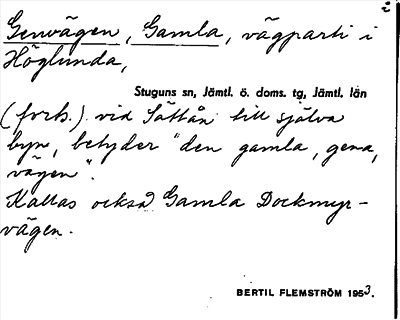 Genvägen, Gamla, vägparti i
Höglunda,
Stuguns sn, Jämtl. ö. doms. tg, Jämtl. län
(forts.) vid Sättån till själva
byn, betyder "den gamla, gena,
vägen".
Kallas också Gamla Dockmyr-
vägen.
BERTIL FLEMSTRÖM 1953.